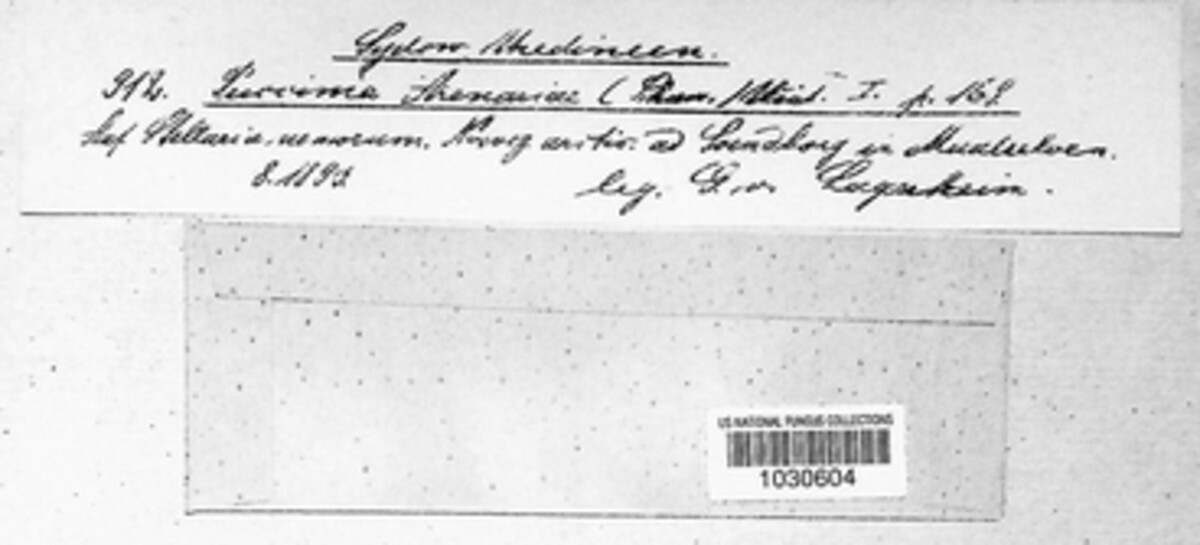 Sydow Uredineen.
912. Puccinia Arenariae ( I. p. 168
Auf Stellaria nemorum. Norveg arctic: ad in
8. 1893.
leg. G. v. Lagerheim.
US NATIONAL FUNGUS COLLECTIONS
1030604